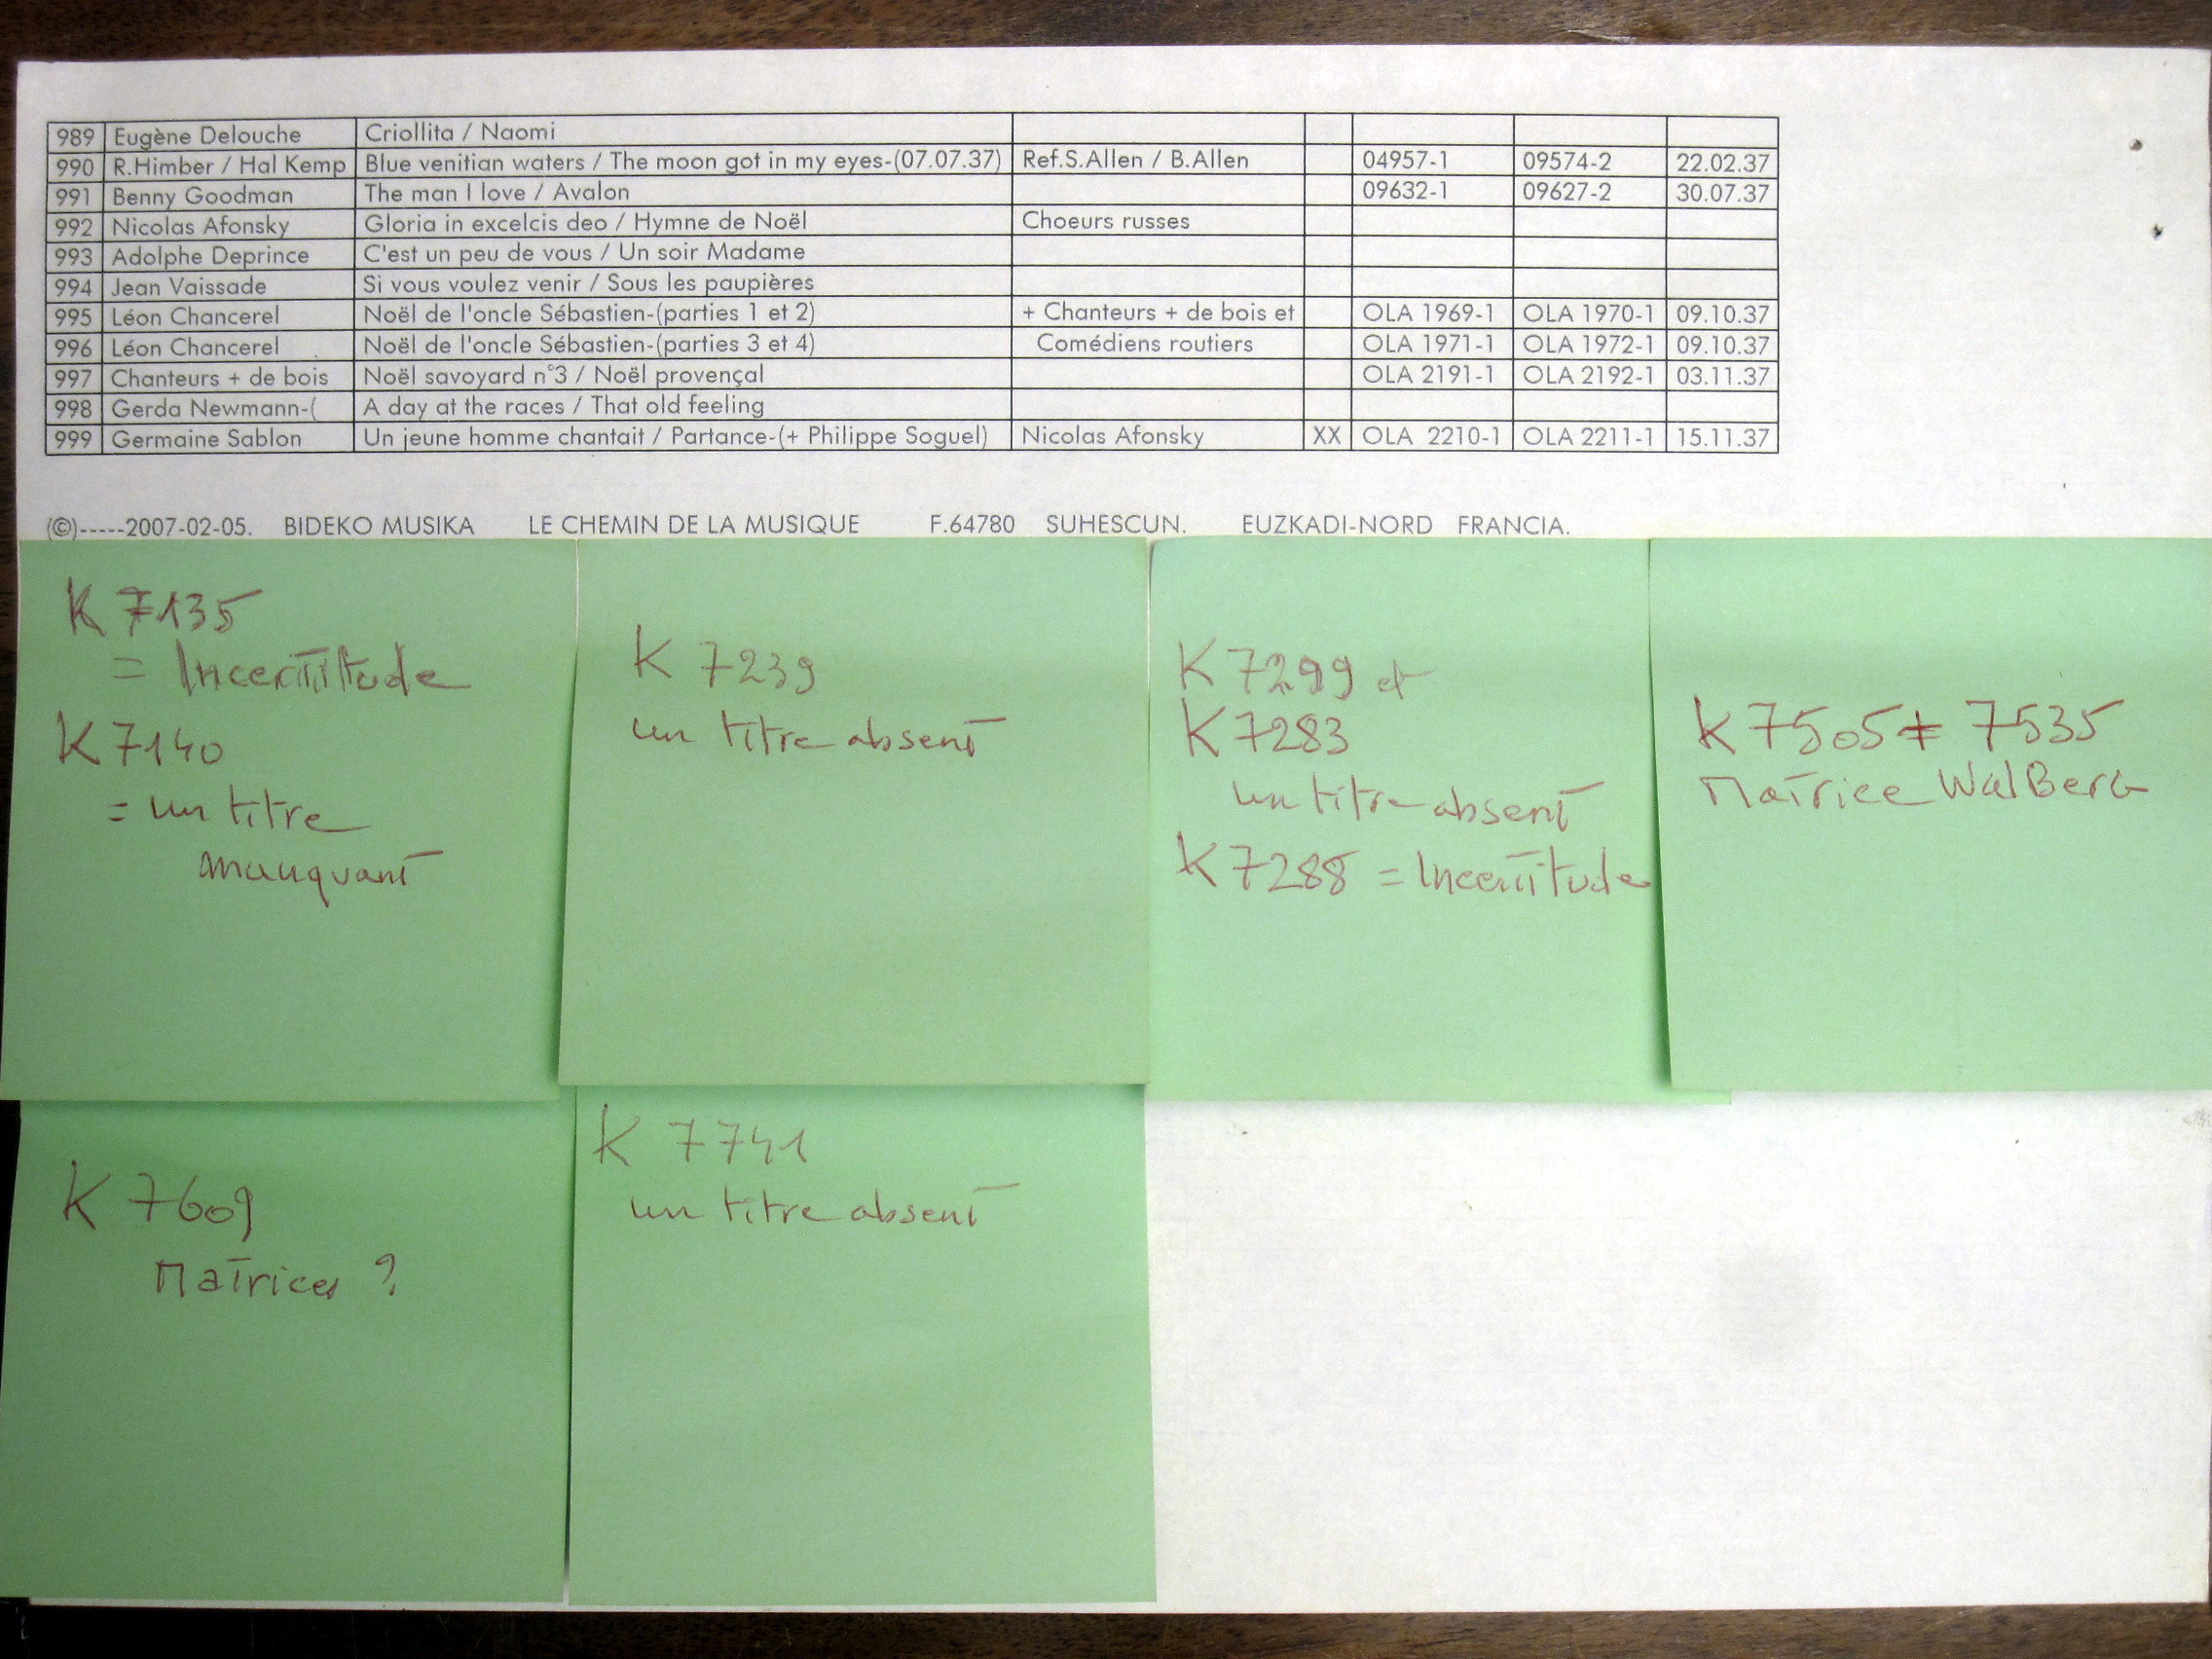 989 Eugène Delouche Criollita / Naomi
990 R.Himber / Hal Kemp Blue venitian waters / The moon got in my eyes-(07.07.37) Ref.S.Allen / B.Allen 04957-1 09574-2 22.02.37
991 Benny Goodman The man I love / Avalon 09632-1 09627-2 30.07.37
992 Nicolas Afonsky Gloria in excelcis deo / Hymne de Noël Choeurs russes
993 Adolphe Deprince C'est un peu de vous / Un soir Madame
994 Jean Vaissade Si vous voulez venir / Sous les paupières
995 Léon Chancerel Noël de l'oncle Sébastien-(parties 1 et 2) + Chanteurs + de bois et OLA 1969-1 OLA 1970-1 09.10.37
996 Léon Chancerel Noël de l'oncle Sébastien-(parties 3 et 4) Comédiens routiers OLA 1971-1 OLA 1972-1 09.10.37
997 Chanteurs + de bois Noël savoyard n°3 / Noël provençal OLA 2191-1 OLA 2192-1 03.11.37
998 Gerda Newmann-( A day at the races / That old feeling
999 Germaine Sablon Un jeune homme chantait / Partance-(+ Philippe Soguel) Nicolas Afonsky XX OLA 2210-1 OLA 2211-1 15.11.37
(©)-----2007-02-05. BIDEKO MUSIKA LE CHEMIN DE LA MUSIQUE F.64780 SUHESCUN. EUZKADI-NORD FRANCIA.
K 7135
= Incertitude
K 7140
= un titre
manquant
K 7239
un titre absent
K 7299 et
K 7283
un titre absent
K 7288 = Incertitude
K 7505 ≠ 7535
Matrice WalBerG
K 7609
Matrices ?
K 7741
un titre absent